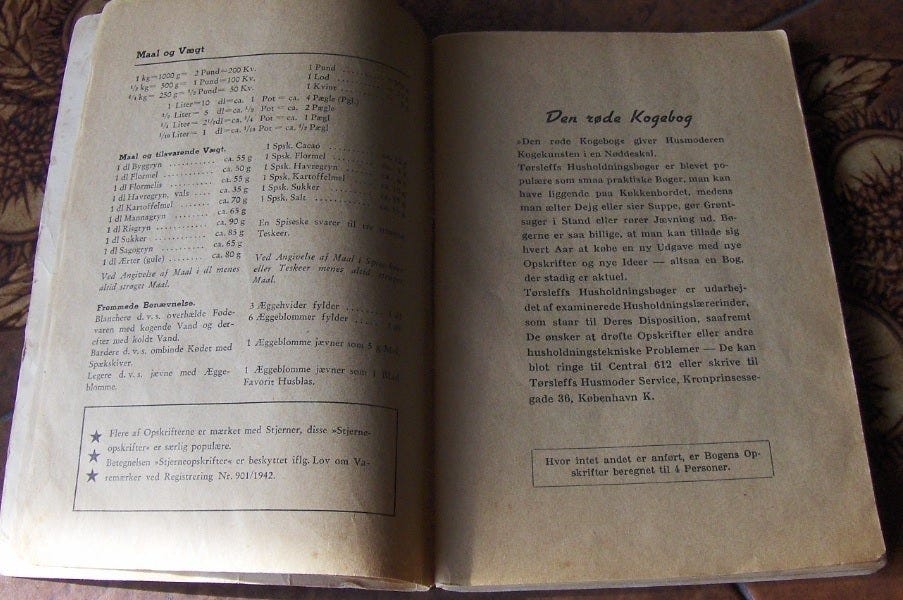 Maal og Vægt
1 kg=1000 g= 2 Pund=200 Kv.
½ kg= 500 g= 1 Pund=100 Kv.
¼ kg= 250 g= ½ Pund= 50 Kv.
1 Pund
1 Lod
1 Kvint
1 Liter=10 dl=ca. 1 Pot = ca. 4 Pægle (Pgl.)
½ Liter= 5 dl=ca. ½ Pot = ca. 2 Pægle
¼ Liter= 2½dl=ca. ¼ Pot = ca. 1 Pægl
1/10 Liter= 1 dl=ca. 1/10 Pot = ca. ½ Pægl
Maal og tilsvarende Vægt.
1 dl Byggryn ca. 55 g
1 dl Flormel ca. 50 g
1 dl Flormelis ca. 55 g
1 dl Havregryn, vals ca. 35 g
1 dl Kartoffelmel ca. 70 g
1 dl Mannagryn ca. 65 g
1 dl Risgryn ca. 90 g
1 dl Sukker ca. 85 g
1 dl Sagogryn ca. 65 g
1 dl Ærter (gule) ca. 80 g
Ved Angivelse af Maal i dl menes
altid strøget Maal.
1 Spsk. Cacao
1 Spsk. Flormel
1 Spsk. Havregryn
1 Spsk. Kartoffelmel
1 Spsk. Sukker
1 Spsk. Salt
En Spiseske svarer til tre
Teskeer.
Ved Angivelse af Maal i
eller Teskeer menes altid strøget
Maal.
Fremmede Benævnelse.
Blanchere d. v. s. overhælde Føde-
varen med kogende Vand og der-
efter med koldt Vand.
Bardere d. v. s. ombinde Kødet med
Spækskiver.
Legere d. v. s. jævne med Ægge-
blomme.
3 Æggehvider fylder
6 Æggeblommer fylder
1 Æggeblomme jævner som 5 g Mel
1 Æggeblomme jævner som 1 Blad
Favorit Husblas.
★ Flere af Opskrifterne er mærket med Stjerner, disse »Stjerne-
opskrifter« er særlig populære.
★ Betegnelsen »Stjerneopskrifter« er beskyttet iflg. Lov om Va-
★ remærker ved Registrering Nr. 901/1942.
Den røde Kogebog
»Den røde Kogebog« giver Husmoderen
Kogekunsten i en Nøddeskal.
Tørsleffs Husholdningsbøger er blevet po-
pulære som smaa praktiske Bøger, man kan
have liggende paa Køkkenbordet, medens
man ælter Dejg eller sier Suppe, gør Grønt-
sager i Stand eller rører Jævning ud. Bø-
gerne er saa billige, at man kan tillade sig
hvert Aar at købe en ny Udgave med nye
Opskrifter og nye Ideer — altsaa en Bog,
der stadig er aktuel.
Tørsleffs Husholdningsbøger er udarbej-
det af examinerede Husholdningslærerinder,
som staar til Deres Disposition, saafremt
De ønsker at drøfte Opskrifter eller andre
husholdningstekniske Problemer — De kan
blot ringe til Central 612 eller skrive til
Tørsleffs Husmoder Service, Kronprinsesse-
gade 36, København K.
Hvor intet andet er anført, er Bogens Op-
skrifter beregnet til 4 Personer.